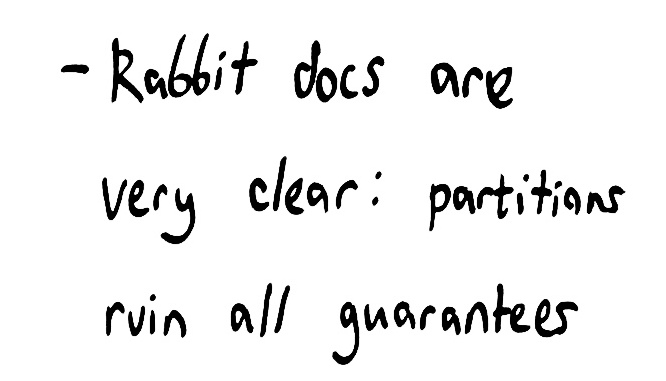 - Rabbit docs are
very clear: partitions
ruin all guarantees